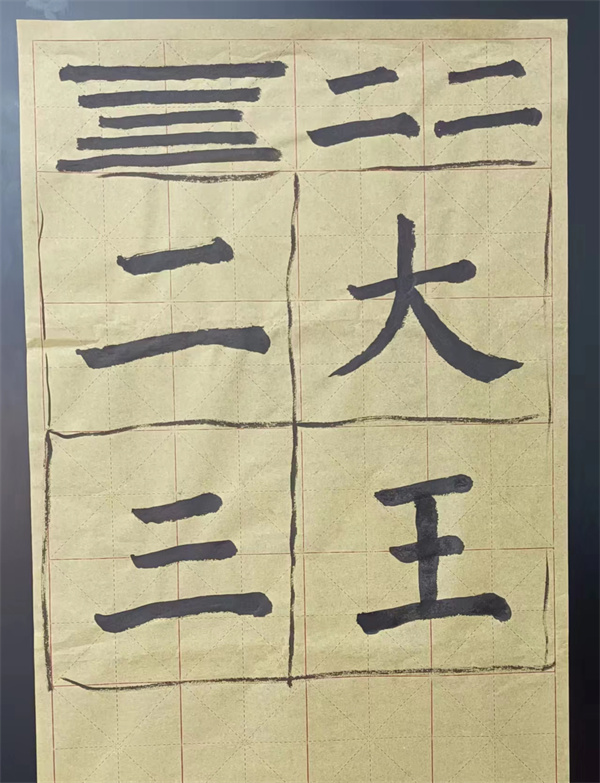 二 二
二 大
三 王